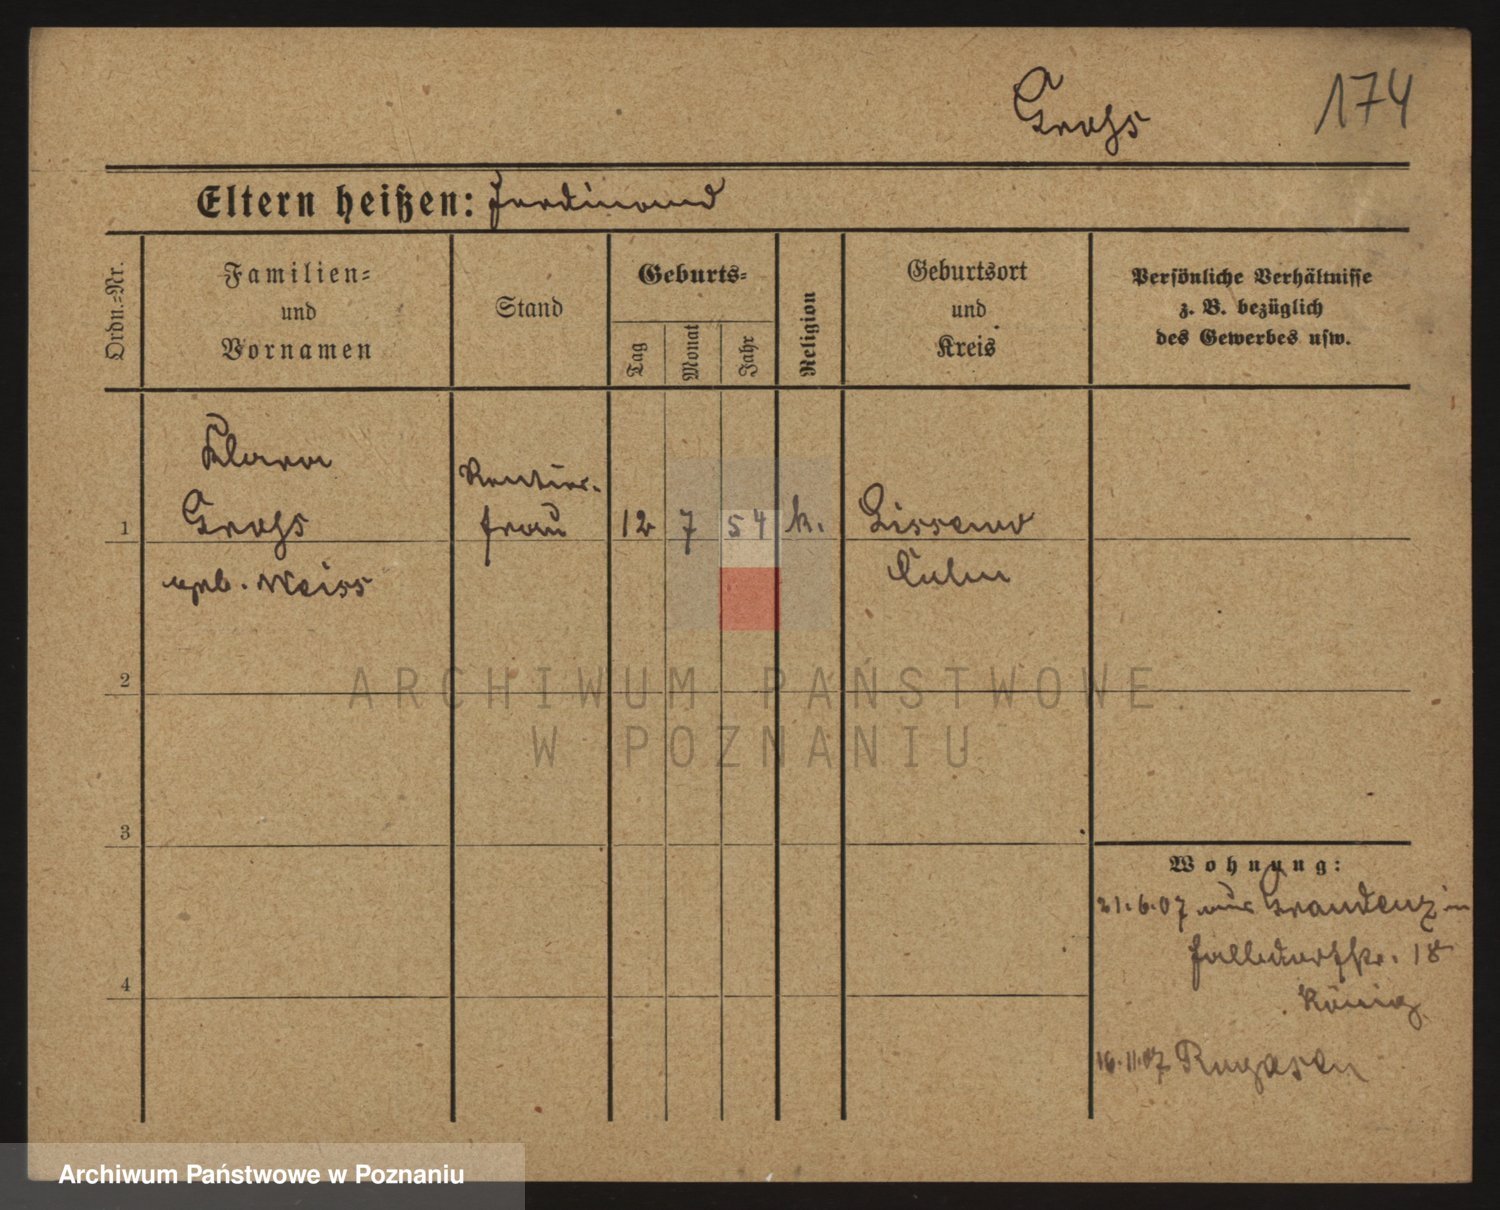 Grohs 174
Eltern heißen: Ferdinand
Ordn.-Nr.
Familien-
und
Vornamen
Stand
Geburts-
Tag
Monat
Jahr
Religion
Geburtsort
und
Kreis
Persönliche Verhältnisse
z. B. bezüglich
des Gewerbes usw.
Klara
Rentier-
1 Grohs frau 12 7 54 k. Lissewo
geb. Weiss Culm
2
ARCHIWUM PAŃSTWOWE
W POZNANIU
3
Wohnung:
21.6.07 aus Graudenz in
str. 18
4
König
16.11.07 Rogasen
Archiwum Państwowe w Poznaniu